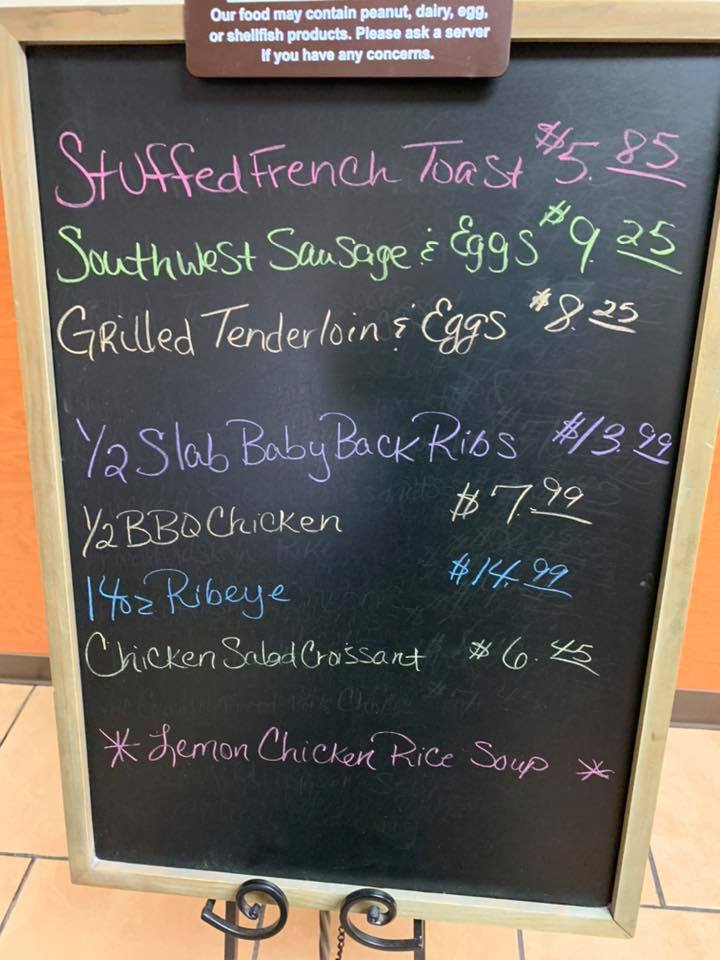 Our food may contain peanut, dairy, egg,
or shellfish products. Please ask a server
if you have any concerns.
Stuffed French Toast $5.85
Southwest Sausage & Eggs $9.25
Grilled Tenderloin & Eggs $8.25
1/2 Slab Baby Back Ribs $13.99
1/2 BBQ Chicken $7.99
14oz Ribeye $14.99
Chicken Salad Croissant $6.45
* Lemon Chicken Rice Soup *